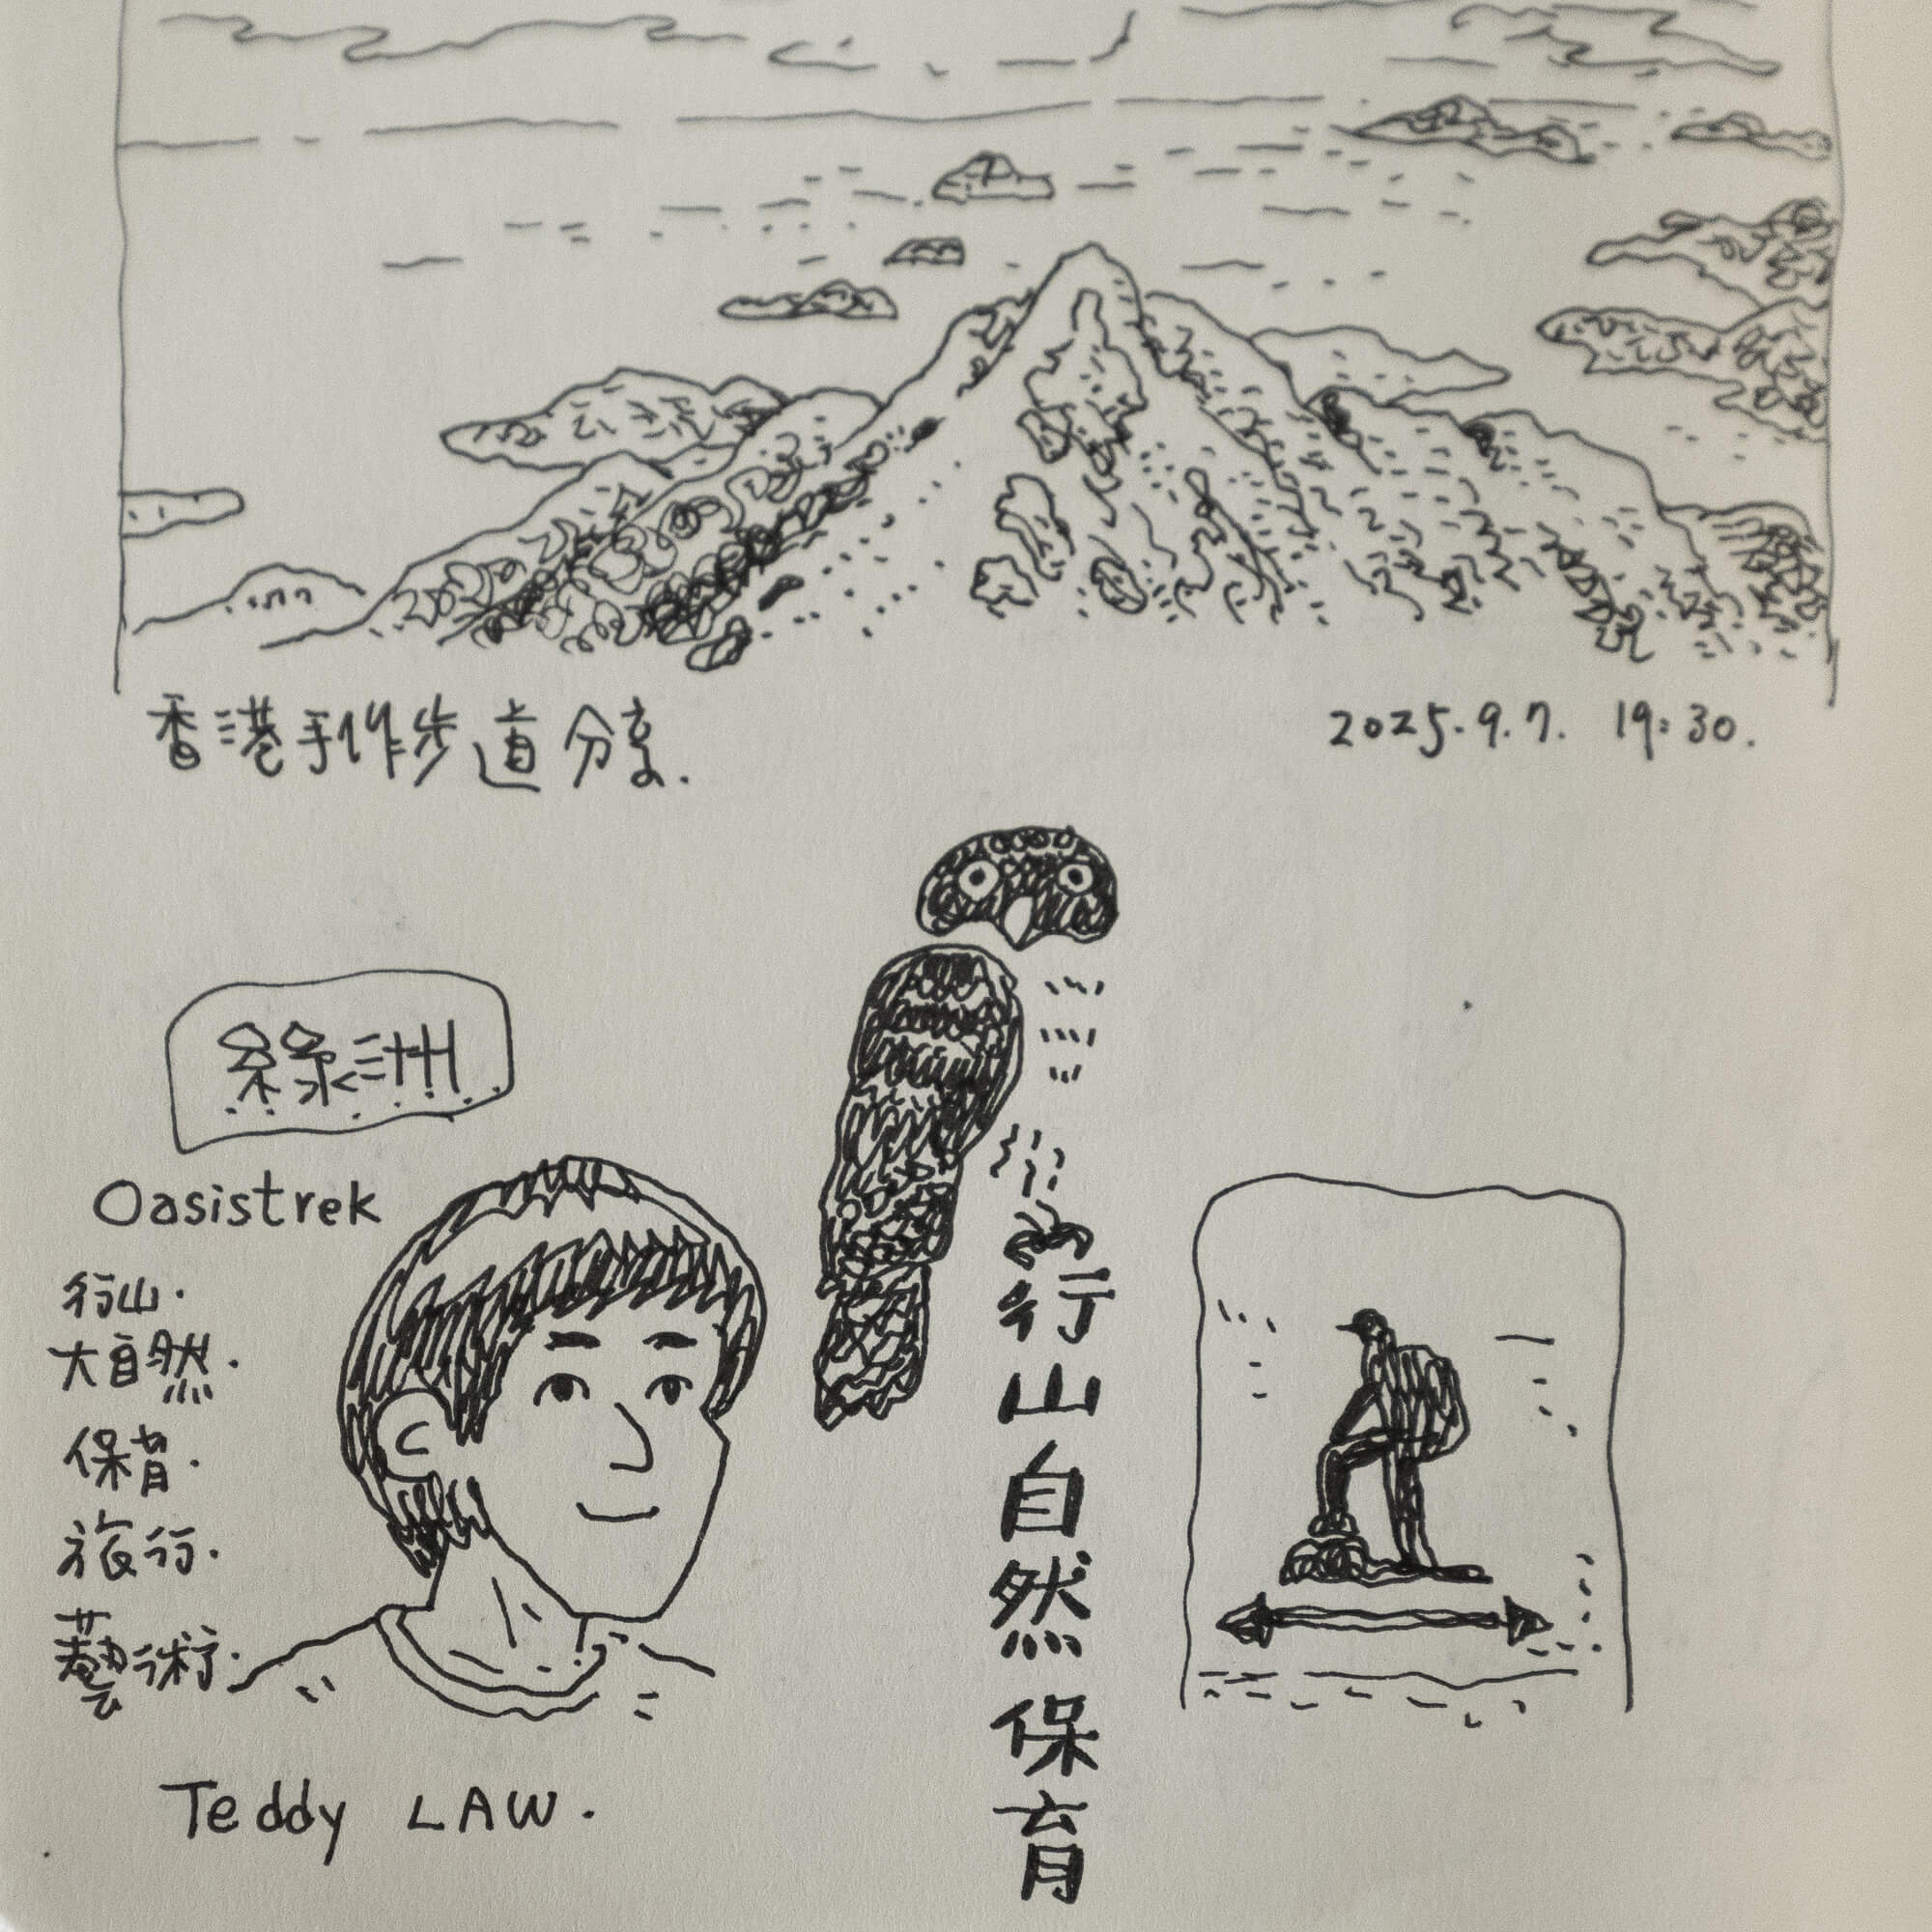 香港手作步道分享.
2025.9.7. 19:30.
綠洲
Oasistrek
行山.
大自然.
保育.
旅行.
藝術.
Teddy LAW.
行山自然保育